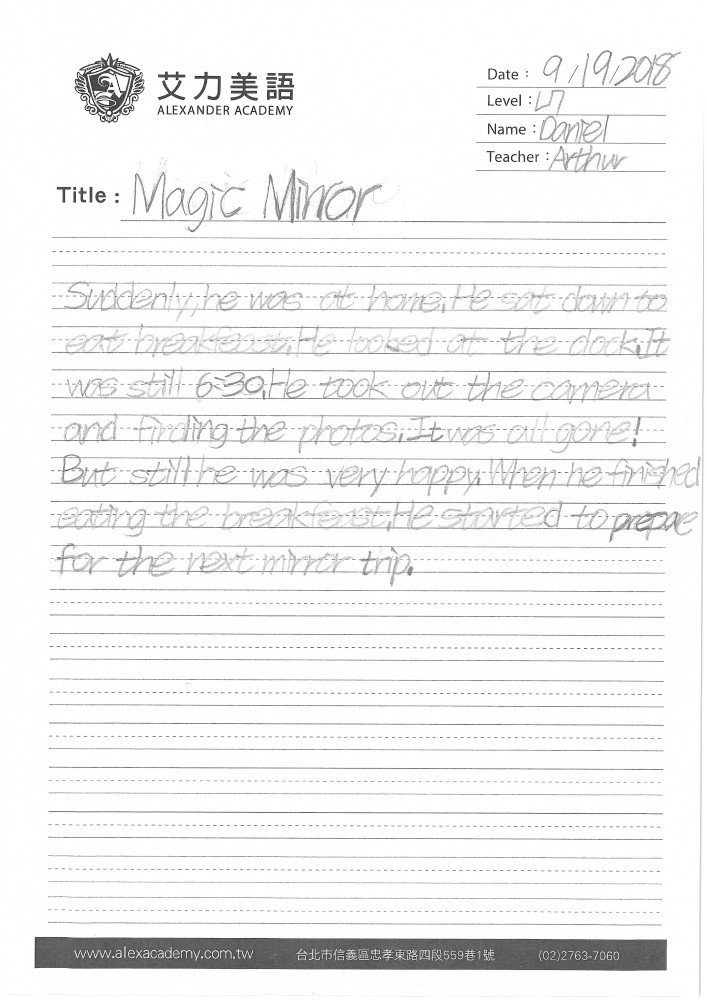 艾力美語
ALEXANDER ACADEMY
Date : 9/19/2018
Level : L7
Name : Daniel
Teacher : Arthur
Title : Magic Mirror
Suddenly, he was at home. He sat down to
eat breakfeast. He looked at the clock. It
was still 6:30. He took out the camera
and finding the photos. It was all gone!
But still he was very happy. When he finished
eating the breakfeast, He started to prepae
for the next mirror trip.
www.alexacademy.com.tw 台北市信義區忠孝東路四段559巷1號 (02)2763-7060